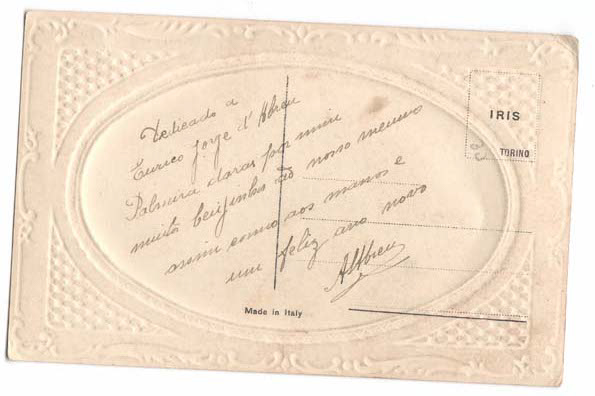 Dedicado a
Eurico Jorge d'Abreu
Palmira daras por mim
muitos beijinhos ao nosso menino
assim como aos manos e
um feliz ano novo
AAbreu
IRIS
TORINO
Made in Italy